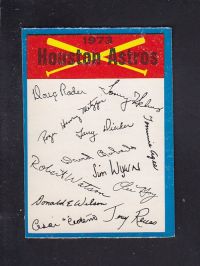 1973
Houston Astros
Doug Rader
Tommy Helms
Metzger
Roger
Larry Dierker
Tommie Agee
Jim Wynn
Robert Watson
Lee May
Donald E. Wilson
Cesar "Cedeno"
Jerry Reuss